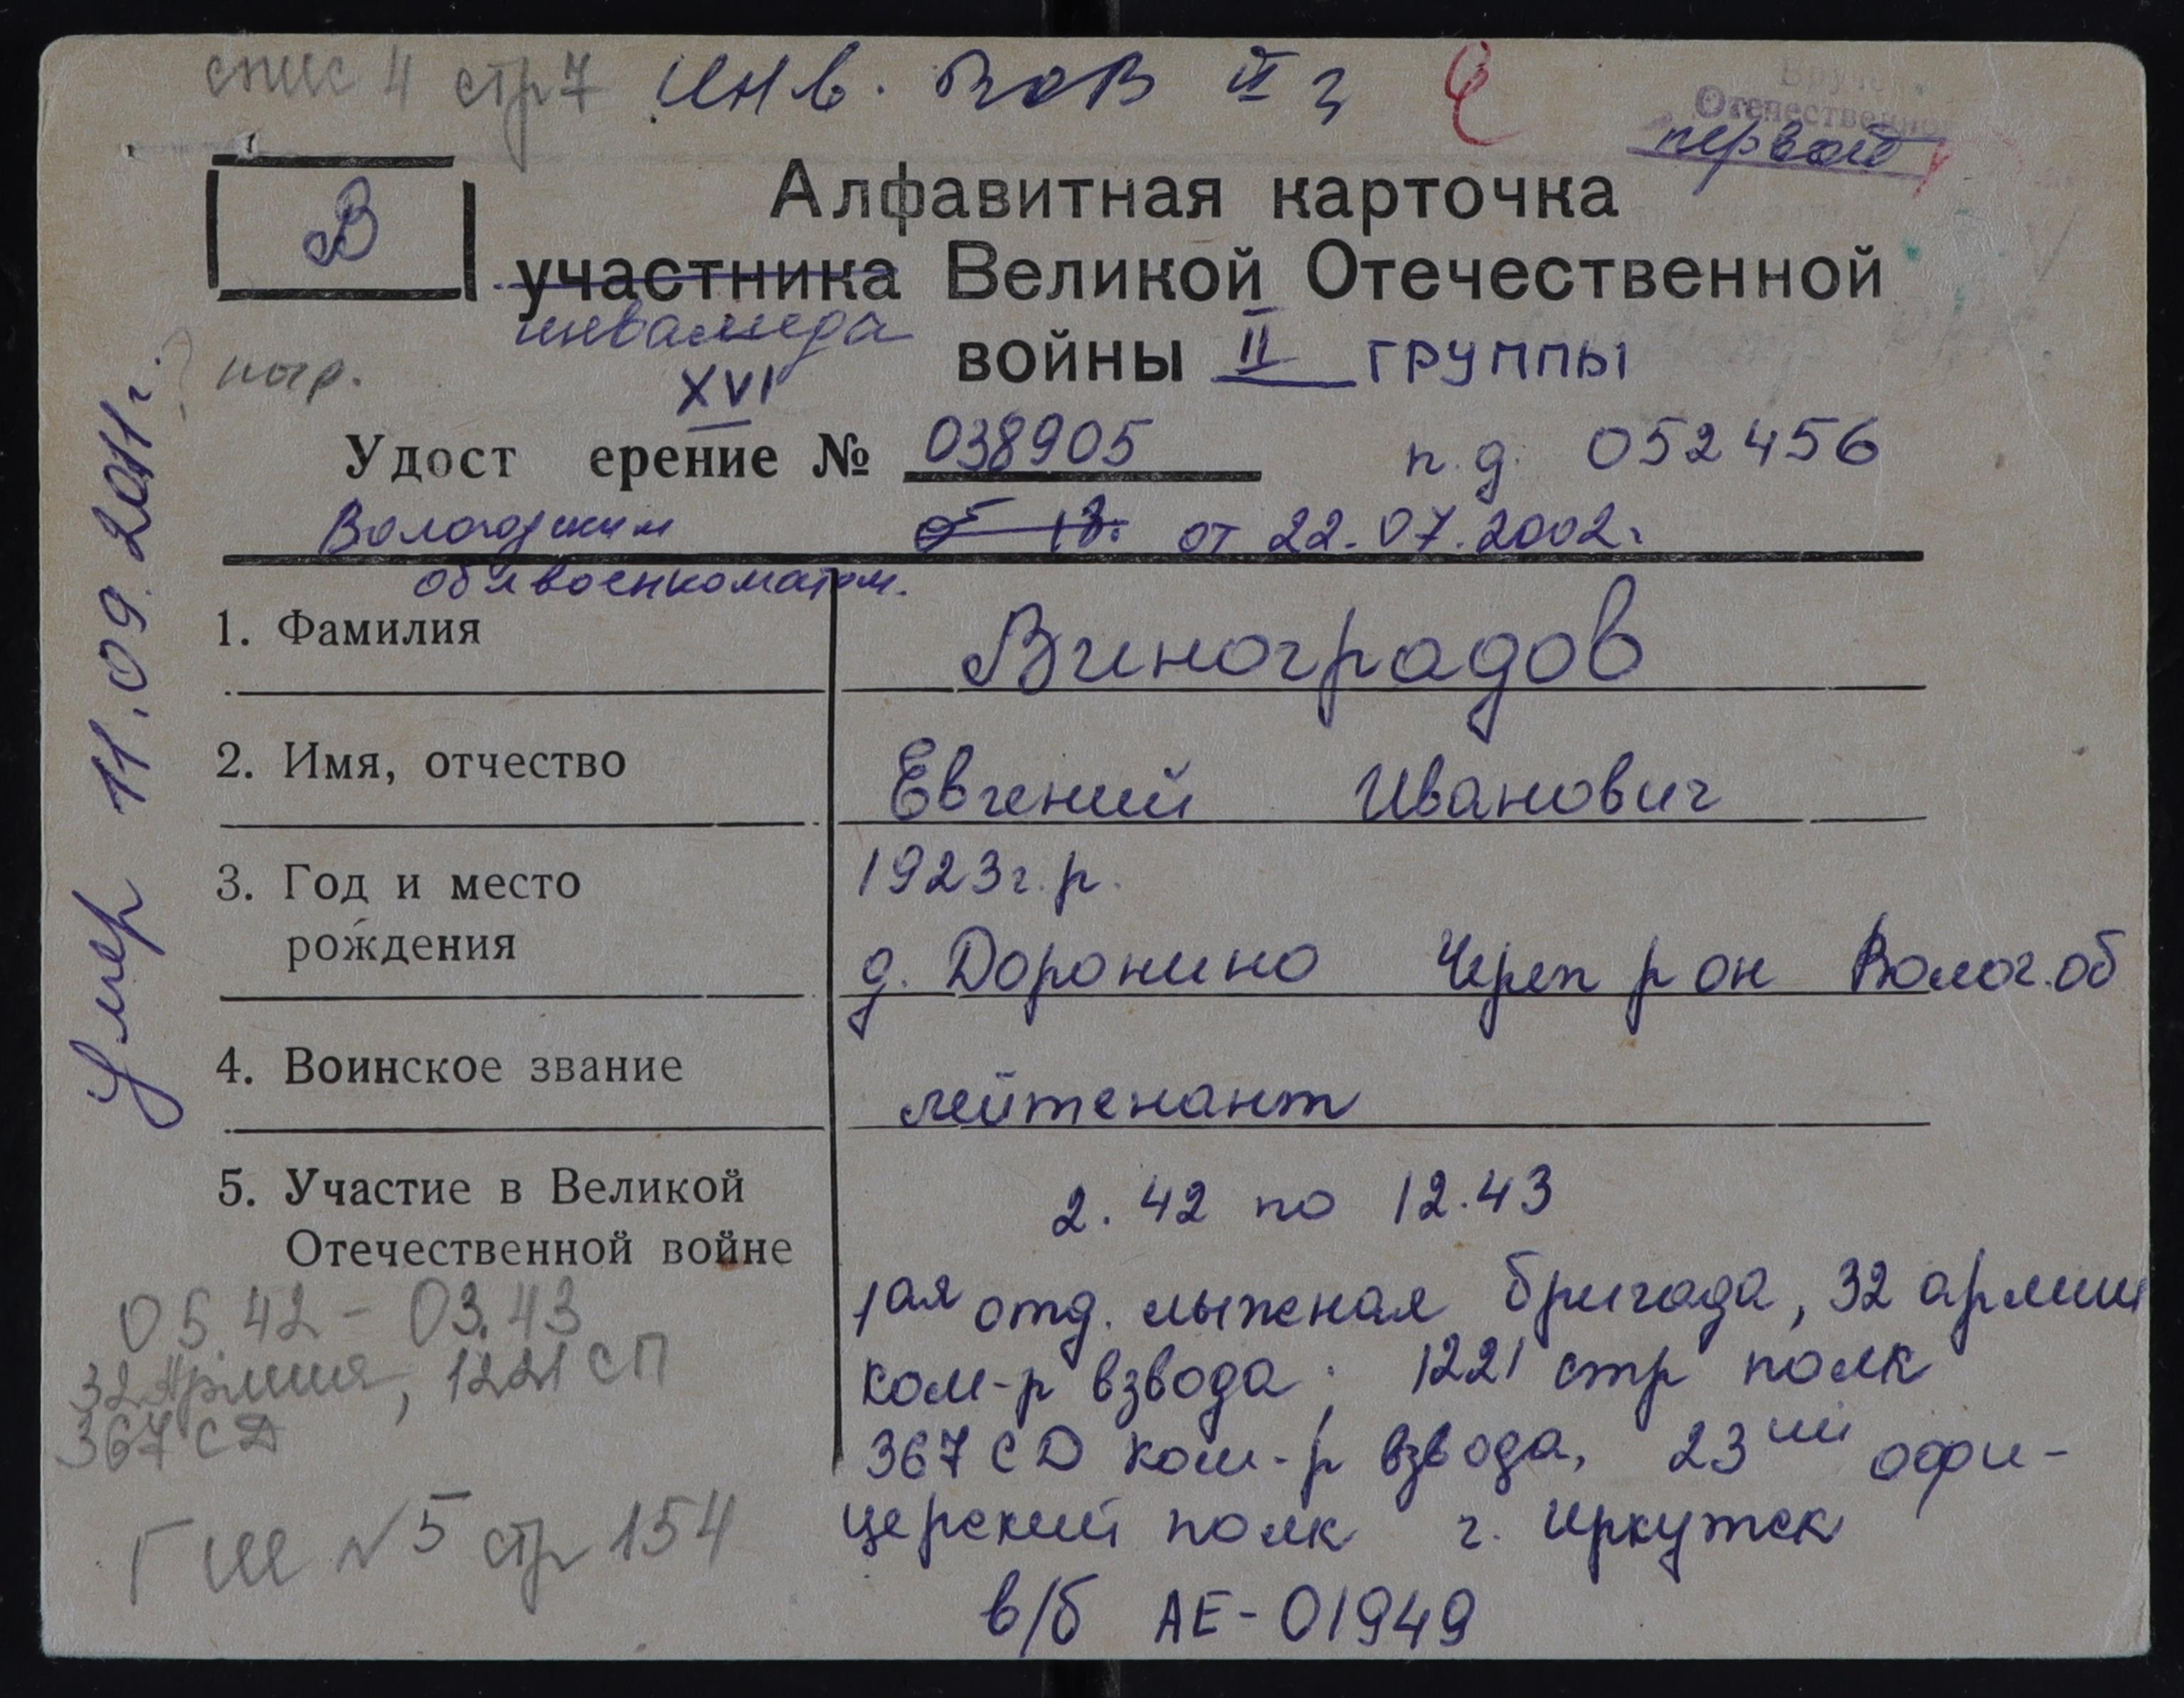 спис 4 стр 7 инв. ВОВ II г
Отечественной
первой
В
Алфавитная карточка
участника Великой Отечественной
инвалида
войны II группы
XVI
Удост ерение № 038905 п.д. 052456
Вологодским от 22.07.2002г
облвоенкоматом.
Умер 11.09.2011г.
1. Фамилия Виноградов
2. Имя, отчество Евгений Иванович
3. Год и место 1923г.р.
рождения д. Доронино Череп р он Волог.об
4. Воинское звание лейтенант
5. Участие в Великой 2.42 по 12.43
Отечественной войне
1ая отд. лыжная бригада, 32 армии
ком-р взвода; 1221 стр полк
367 СД ком-р взвода, 23ий офи-
церский полк г. Иркутск
в/б АЕ-01949
05.42 - 03.43
32 Армия, 1221 СП
367 СД
ГШ №5 стр 154